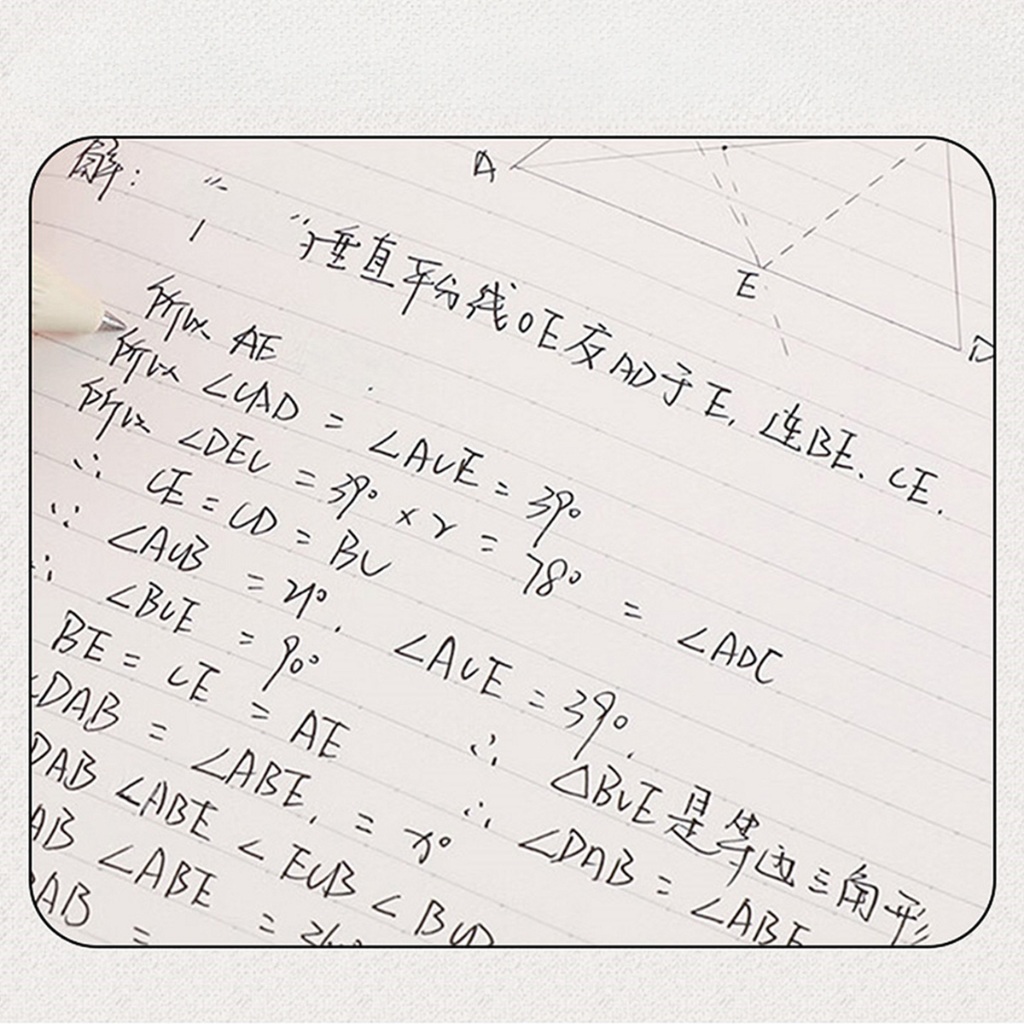 A
E
D
解:
1 垂直平分线OE交AD于E, 连BE、CE.
所以 AE
所以 ∠CAD = ∠ACE = 39°
所以 ∠DEC = 39° × 2 = 78° = ∠ADC
∴ CE = CD = BC
∵ ∠ACB = 21°, ∠ACE = 39°,
∴ ∠BCE = 90° ∴ △BCE是等边三角形
BE = CE = AE ∴ ∠DAB = ∠ABE
∠DAB = ∠ABE, =
DAB ∠ABE < ECB < BCD
AB ∠ABE =
BAB =